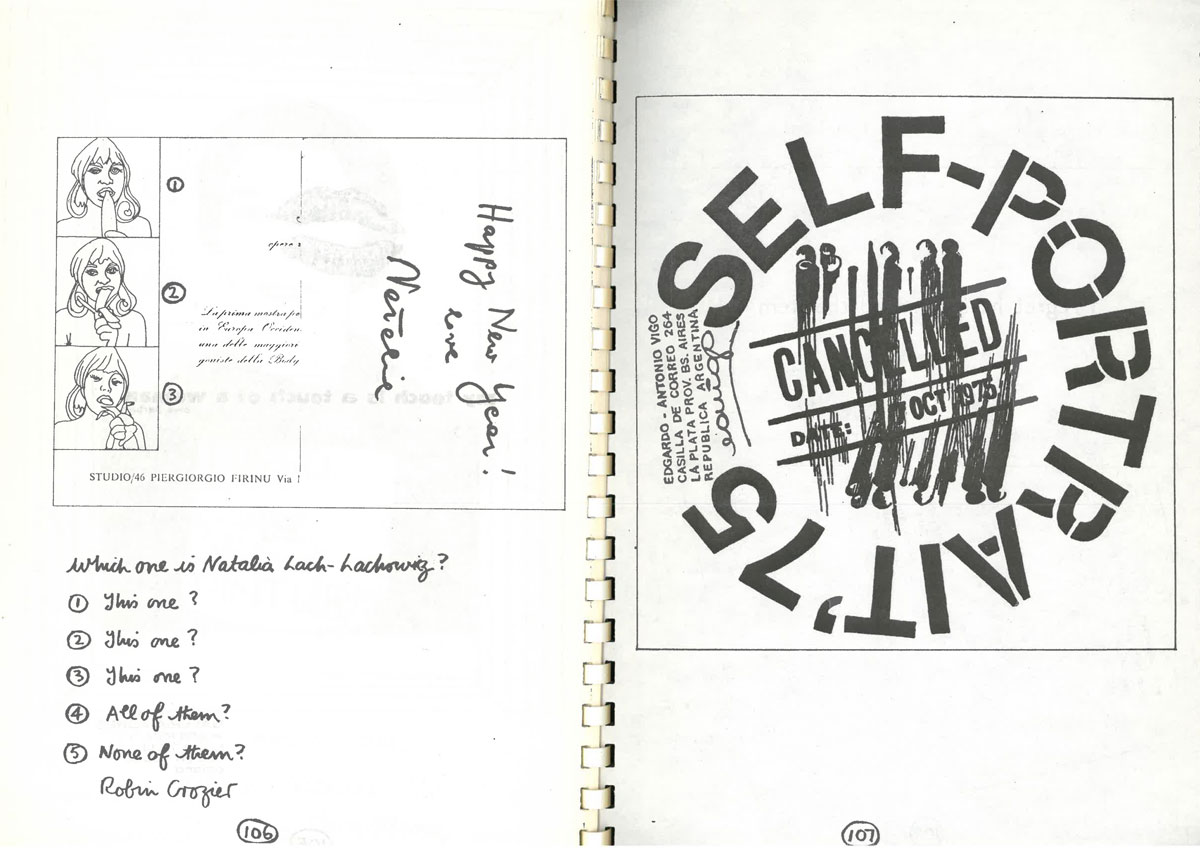 ①
opera
②
La prima mostra pe
in Europa Occiden
una delle maggiori
goniste della Body
③
STUDIO/46 PIERGIORGIO FIRINU Via
Happy New Year!
love
Natalia
Which one is Natalia Lach-Lachowiz?
① This one?
② This one?
③ This one?
④ All of them?
⑤ None of them?
Robin Crozier
106
SELF-PORTRAIT'75
EDGARDO - ANTONIO VIGO
CASILLA DE CORREO 264
LA PLATA PROV. BS. AIRES
REPUBLICA ARGENTINA
CANCELLED
DATE: 7 OCT 1975
107